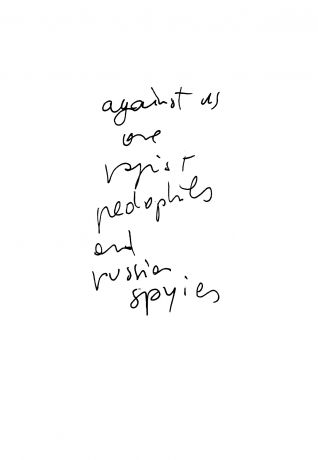 against us
are
rapist
pedophiles
and
russian
spyies